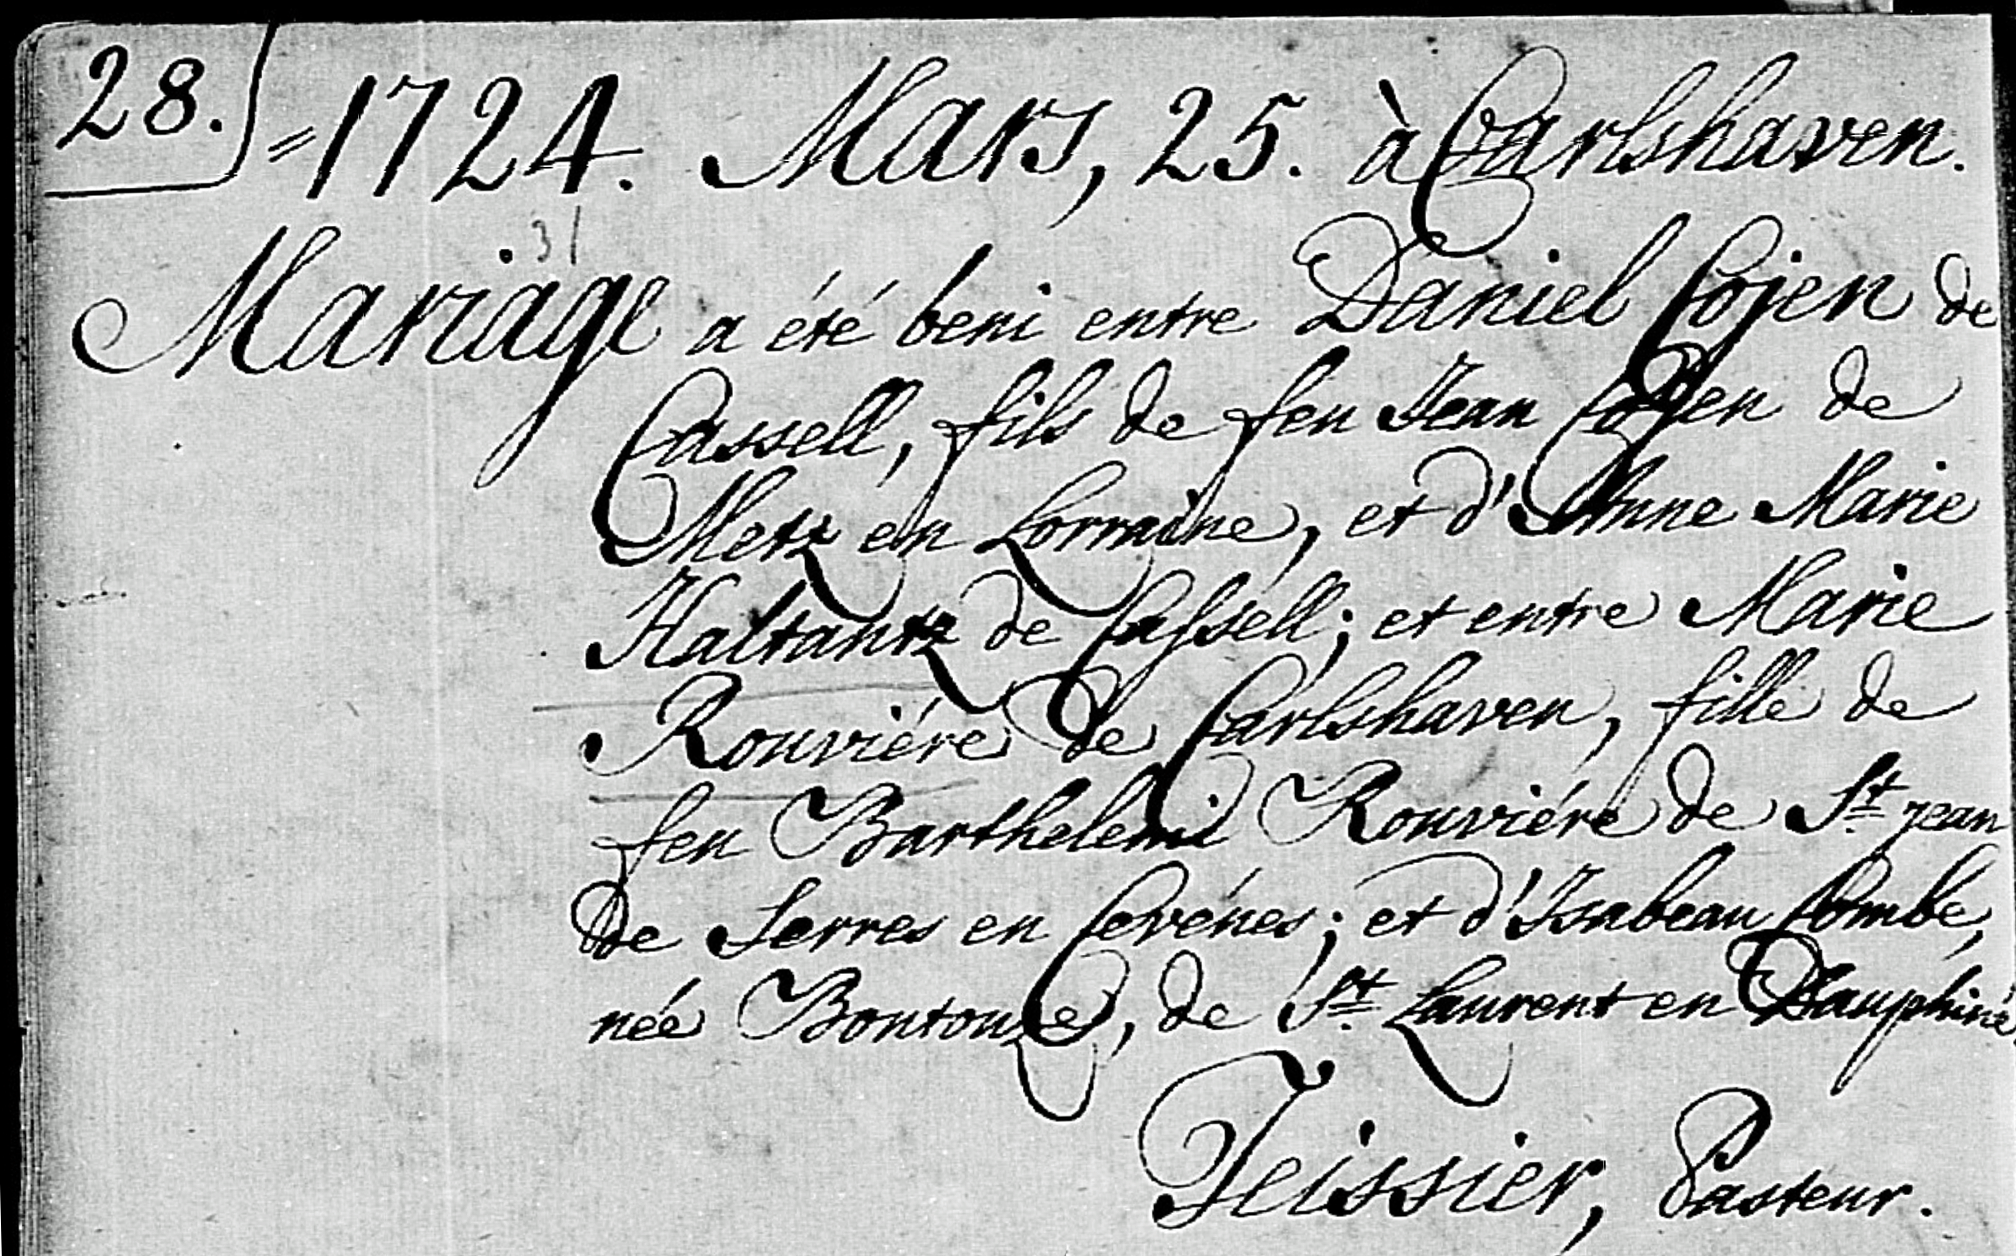 28. = 1724. Mars, 25. à Carlshaven.
31
Mariage a été beni entre Daniel Cojen de
Cassell, fils de feu Jean Cojen de
Metz en Lorraine, et d'Anne Marie
Haltantz de Cassell; et entre Marie
Rouviére de Carlshaven, fille de
feu Barthelemi Rouviére de St. jean
de Serres en Cevénes; et d'Isabeau Combe,
née Bontouze, de St. Laurent en Dauphiné.
Teissier, Pasteur.